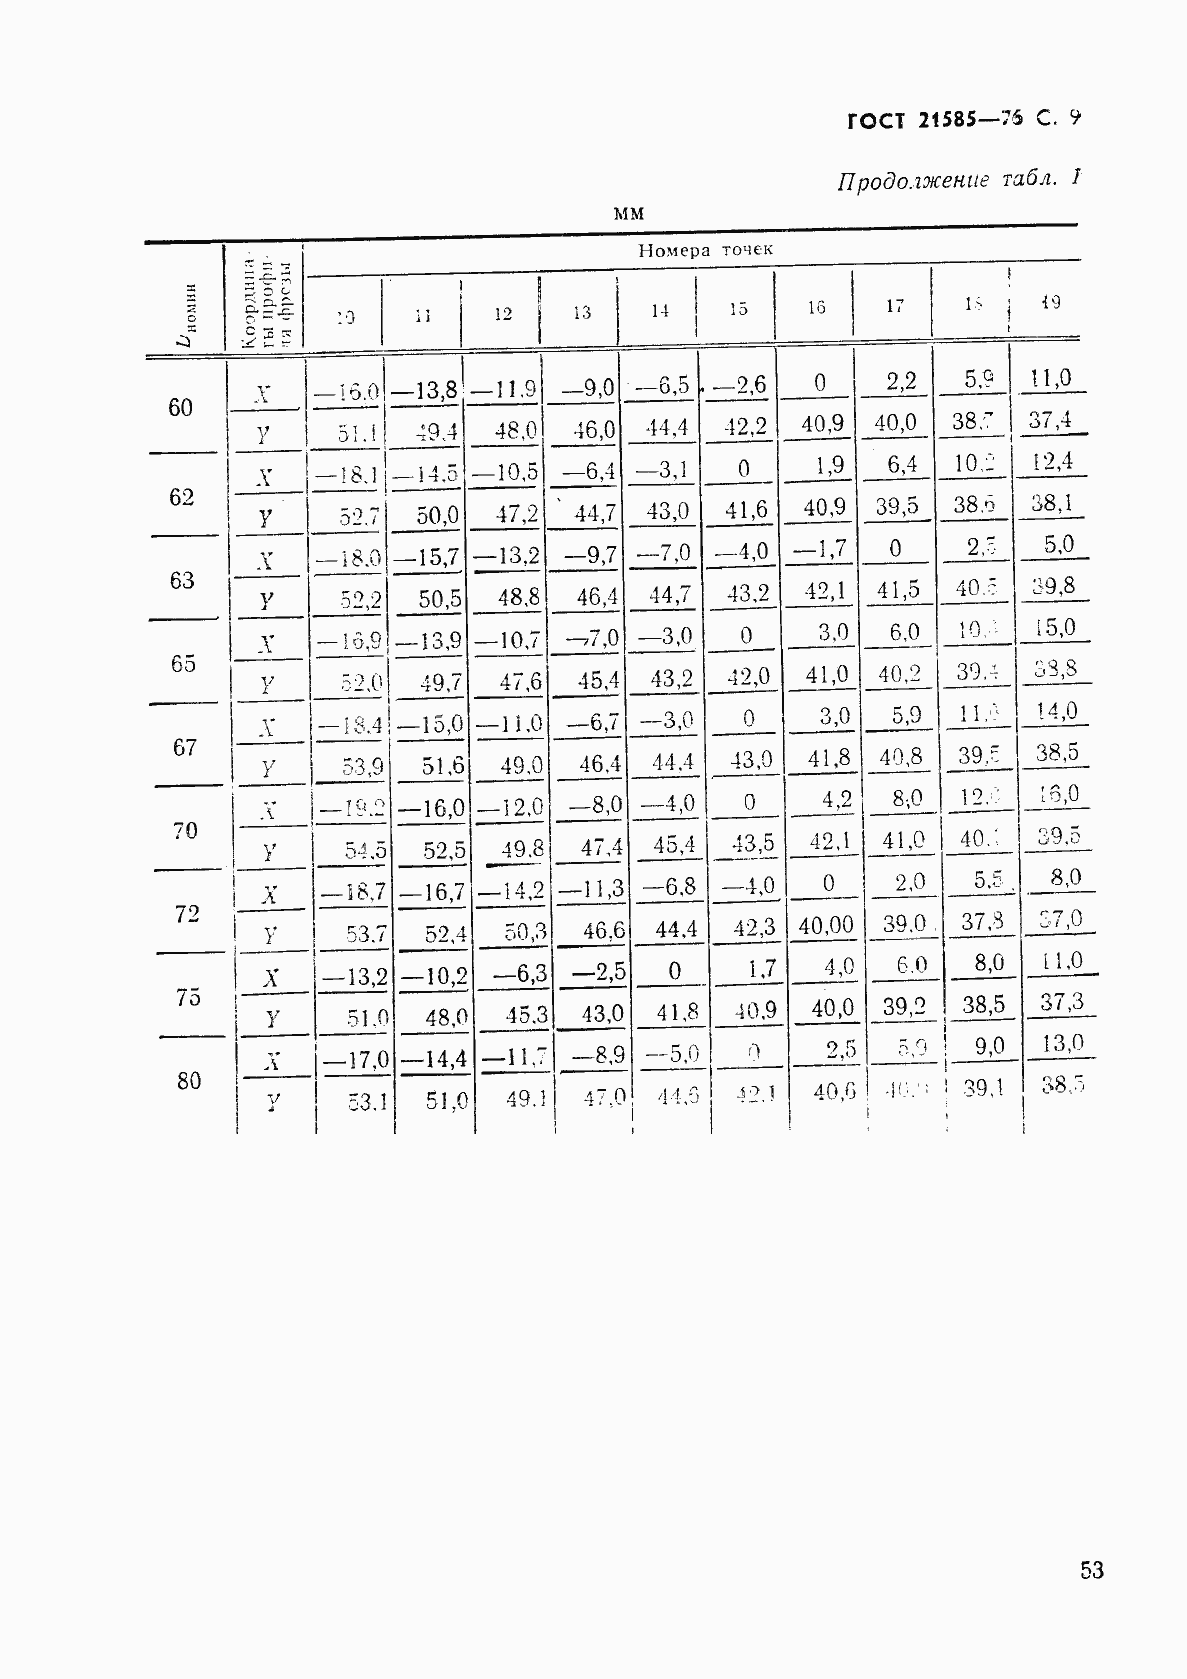 ГОСТ 21585—76 С. 9
Продолжение табл. 1
мм
Dномин Координаты профиля фрезы Номера точек
10 11 12 13 14 15 16 17 18 19
60 X —16,0 —13,8 —11,9 —9,0 —6,5 —2,6 0 2,2 5,9 11,0
Y 51,1 49,4 48,0 46,0 44,4 42,2 40,9 40,0 38,7 37,4
62 X —18,1 —14,5 —10,5 —6,4 —3,1 0 1,9 6,4 10,2 12,4
Y 52,7 50,0 47,2 44,7 43,0 41,6 40,9 39,5 38,6 38,1
63 X —18,0 —15,7 —13,2 —9,7 —7,0 —4,0 —1,7 0 2,5 5,0
Y 52,2 50,5 48,8 46,4 44,7 43,2 42,1 41,5 40,5 39,8
65 X —16,9 —13,9 —10,7 —7,0 —3,0 0 3,0 6,0 15,0
Y 52,0 49,7 47,6 45,4 43,2 42,0 41,0 40,2 39,4 38,8
67 X —18,4 —15,0 —11,0 —6,7 —3,0 0 3,0 5,9 14,0
Y 53,9 51,6 49,0 46,4 44,4 43,0 41,8 40,8 39,5 38,5
70 X —19,2 —16,0 —12,0 —8,0 —4,0 0 4,2 8,0 16,0
Y 54,5 52,5 49,8 47,4 45,4 43,5 42,1 41,0 39,5
72 X —18,7 —16,7 —14,2 —11,3 —6,8 —4,0 0 2,0 5,5 8,0
Y 53,7 52,4 50,3 46,6 44,4 42,3 40,00 39,0 37,8 37,0
75 X —13,2 —10,2 —6,3 —2,5 0 1,7 4,0 6,0 8,0 11,0
Y 51,0 48,0 45,3 43,0 41,8 40,9 40,0 39,2 38,5 37,3
80 X —17,0 —14,4 —11,7 —8,9 —5,0 0 2,5 5,9 9,0 13,0
Y 53,1 51,0 49,1 47,0 44,6 42,1 40,6 39,1 38,5
53